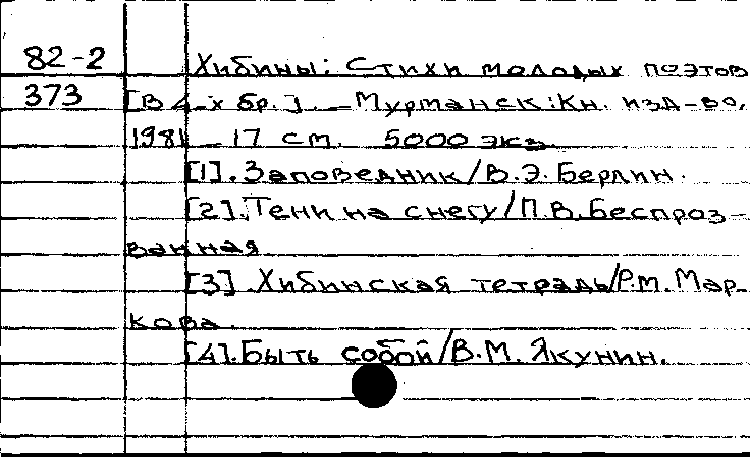 82-2 Хибины: Стихи молодых поэтов
373 [В 4-х бр.]. – Мурманск: Кн. изд-во,
1981 – 17 см. 5000 экз.
[1]. Заповедник/В.Э.Берлин.
[2]. Тени на снегу/П.В.Беспроз-
ванная
[3]. Хибинская тетрадь/Р.М. Мар-
кова.
[4]. Быть собой/В.М. Якунин.